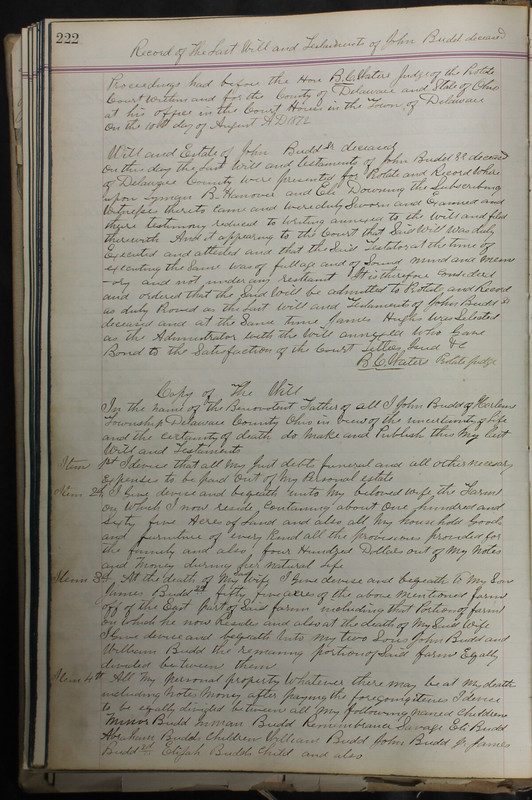 222
Record of the Last Will and Testaments of John Budd deceased
Proceedings had before the Hon B.C. Waters Judge of the Probate
Court Within and for the County of Delaware and State of Ohio
at his office in the Court House in the Town of Delaware
On the 10th day of August A D 1872
Will and Estate of John Budd Sr deceased
On this day the Last Will and testaments of John Budd Sr deceased
of Delaware County were presented for Probate and Record Where
upon Lyman B. Hanover and Eli Downing the Subscribing
Witnesses thereto came and were duly Sworn and Examined and
there testimony reduced to Writing annexed to the Will and filed
therewith And it appearing to the Court that Said Will was duly
Executed and attested and that the Said Testator at the time of
executing the Same was of full age and of Sound mind and mem
-ory and not under any restraint It is therefore Considered
and ordered that the Said Will be admitted to Probate and Record
as duly Proved as the Last Will and Testaments of John Budd Sr
deceased and at the Same time James Hughs Was Selected
as the Administrator with the Will annexed Who Gave
Bond to the Satisfaction of the Court Letters Issued &C
B.C. Waters Probate Judge
Copy of The Will
In the name of the Benevolent Father of all I John Budd of Harlem
Township Delaware County Ohio in view of the uncertainty of life
and the certainty of death do Make and Publish this My last
Will and Testaments
Item 1st I devise that all my Just debts funeral and all other necessary
expenses to be paid Out of My Personal estate
Item 2d I Give devise and bequeath unto My beloved wife the Farm
on Which I now reside Containing about One hundred and
Sixty five Acres of Land and also all My household Goods
and furniture of every Kind all the provisions provided for
the family and also four Hundred Dollars out of My Notes
and Money during her natural life
Item 3d At the death of My Said Wife I Give devise and bequeath to My Son
James Budd 2d fifty five acres of the above Mentioned farm
off of the East part of Said farm including that Portion of farm
on which he now Resides and also at the death of My Said Wife
I Give devise and bequeath Unto my two Sons John Budd and
William Budd the remaining portion of Said farm Equally
divided between them
Item 4th All My personal property Whatever there may be at My death
including Notes Money after paying the foregoing items I desire
to be equally divided between all My following named Children
Budd Inman Budd Remembrance Savage Eli Budd
Abraham Budds Children William Budd John Budd Jr James
Budd 2d Elijah Budds Child and also